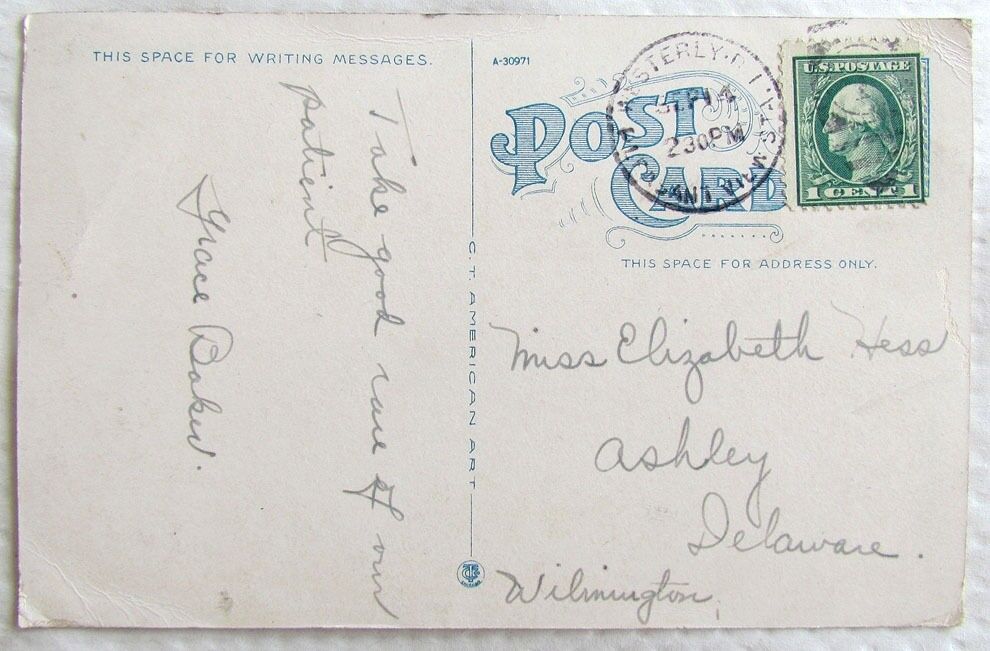 THIS SPACE FOR WRITING MESSAGES.
Take good care of our
patient
Grace Baker.
C. T. AMERICAN ART
A-30971
POST
CARD
WESTERLY, R.I.
2 30 PM
U.S. POSTAGE
1 CENT 1
THIS SPACE FOR ADDRESS ONLY.
Miss Elizabeth Hess
Ashley
Delaware.
Wilmington,